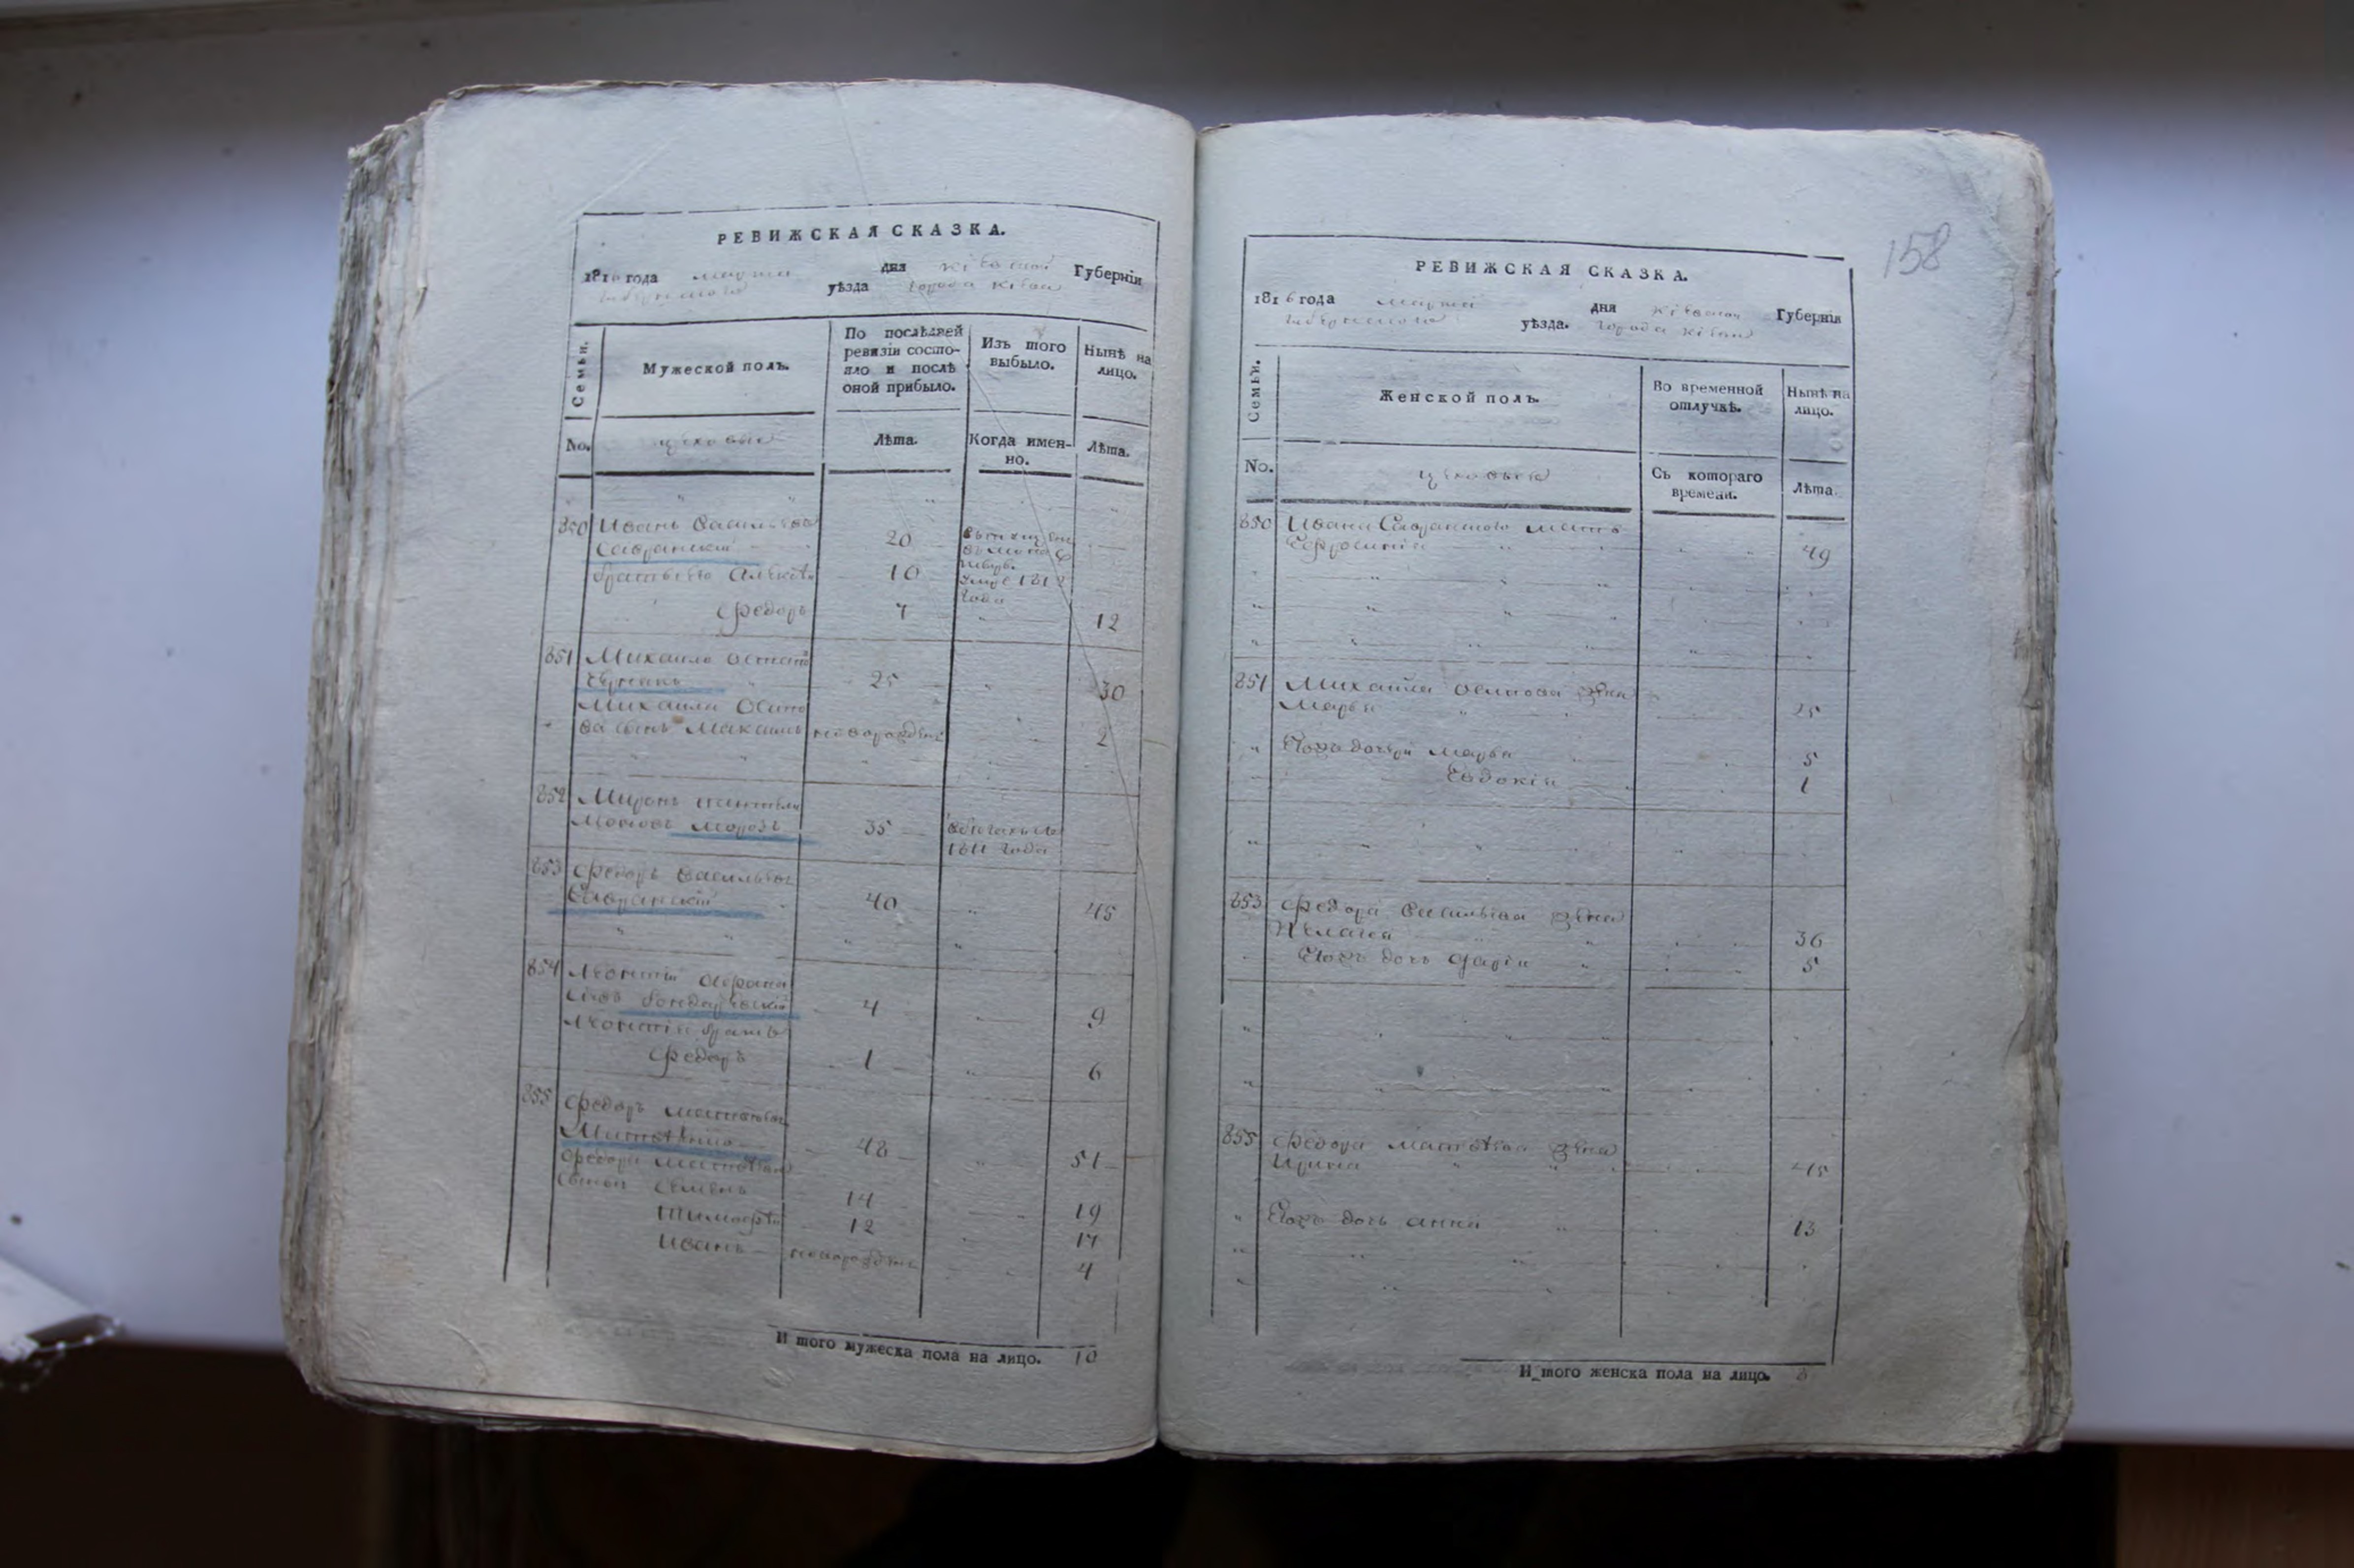 РЕВИЖСКАЯ СКАЗКА.
1816 года марта дня Кіевской Губерніи
уѣзда города Кіева
Семьи.
Мужеской полъ.
По послѣдней ревизіи состояло и послѣ оной прибыло.
Изъ того выбыло.
Нынѣ на лицо.
No.
цеховые
Лѣта.
Когда именно.
Лѣта.
850 Иванъ Васильевъ
Савранскій 20
братья его Алексѣй 10 1812 года
Федоръ 7 12
851 Михайло Осиповъ
25 30
Михайла Осипова сынъ Максимъ новорожденъ 2
852 Миронъ
Морозъ 35 в бегахъ с 1811 года
853 Федоръ Васильевъ
Савранскій 40 45
854 Леонтій
4 9
Леонтія братъ
Федоръ 1 6
855 Федоръ Матвѣевъ
48 51
Федора Матвѣева
сыновья Семенъ 14 19
Тимофѣй 12 17
Иванъ новорожденъ 4
И того мужеска пола на лицо. 10
158
РЕВИЖСКАЯ СКАЗКА.
1816 года марта дня Кіевской Губерніи
уѣзда. города Кіева
Семьи.
Женской полъ.
Во временной отлучкѣ.
Нынѣ на лицо.
No.
цеховыя
Съ котораго времени.
Лѣта.
850 Ивана Савранского мать
Ефросинія 49
851 Михайла Осипова жена
Марья 25
Ихъ дочери Марья 5
Евдокія 1
853 Федора Васильева жена
Пелагея 36
Ихъ дочь Дарія 5
855 Федора Матвѣева жена
Ирина 45
Ихъ дочь Анна 13
И того женска пола на лицо. 8